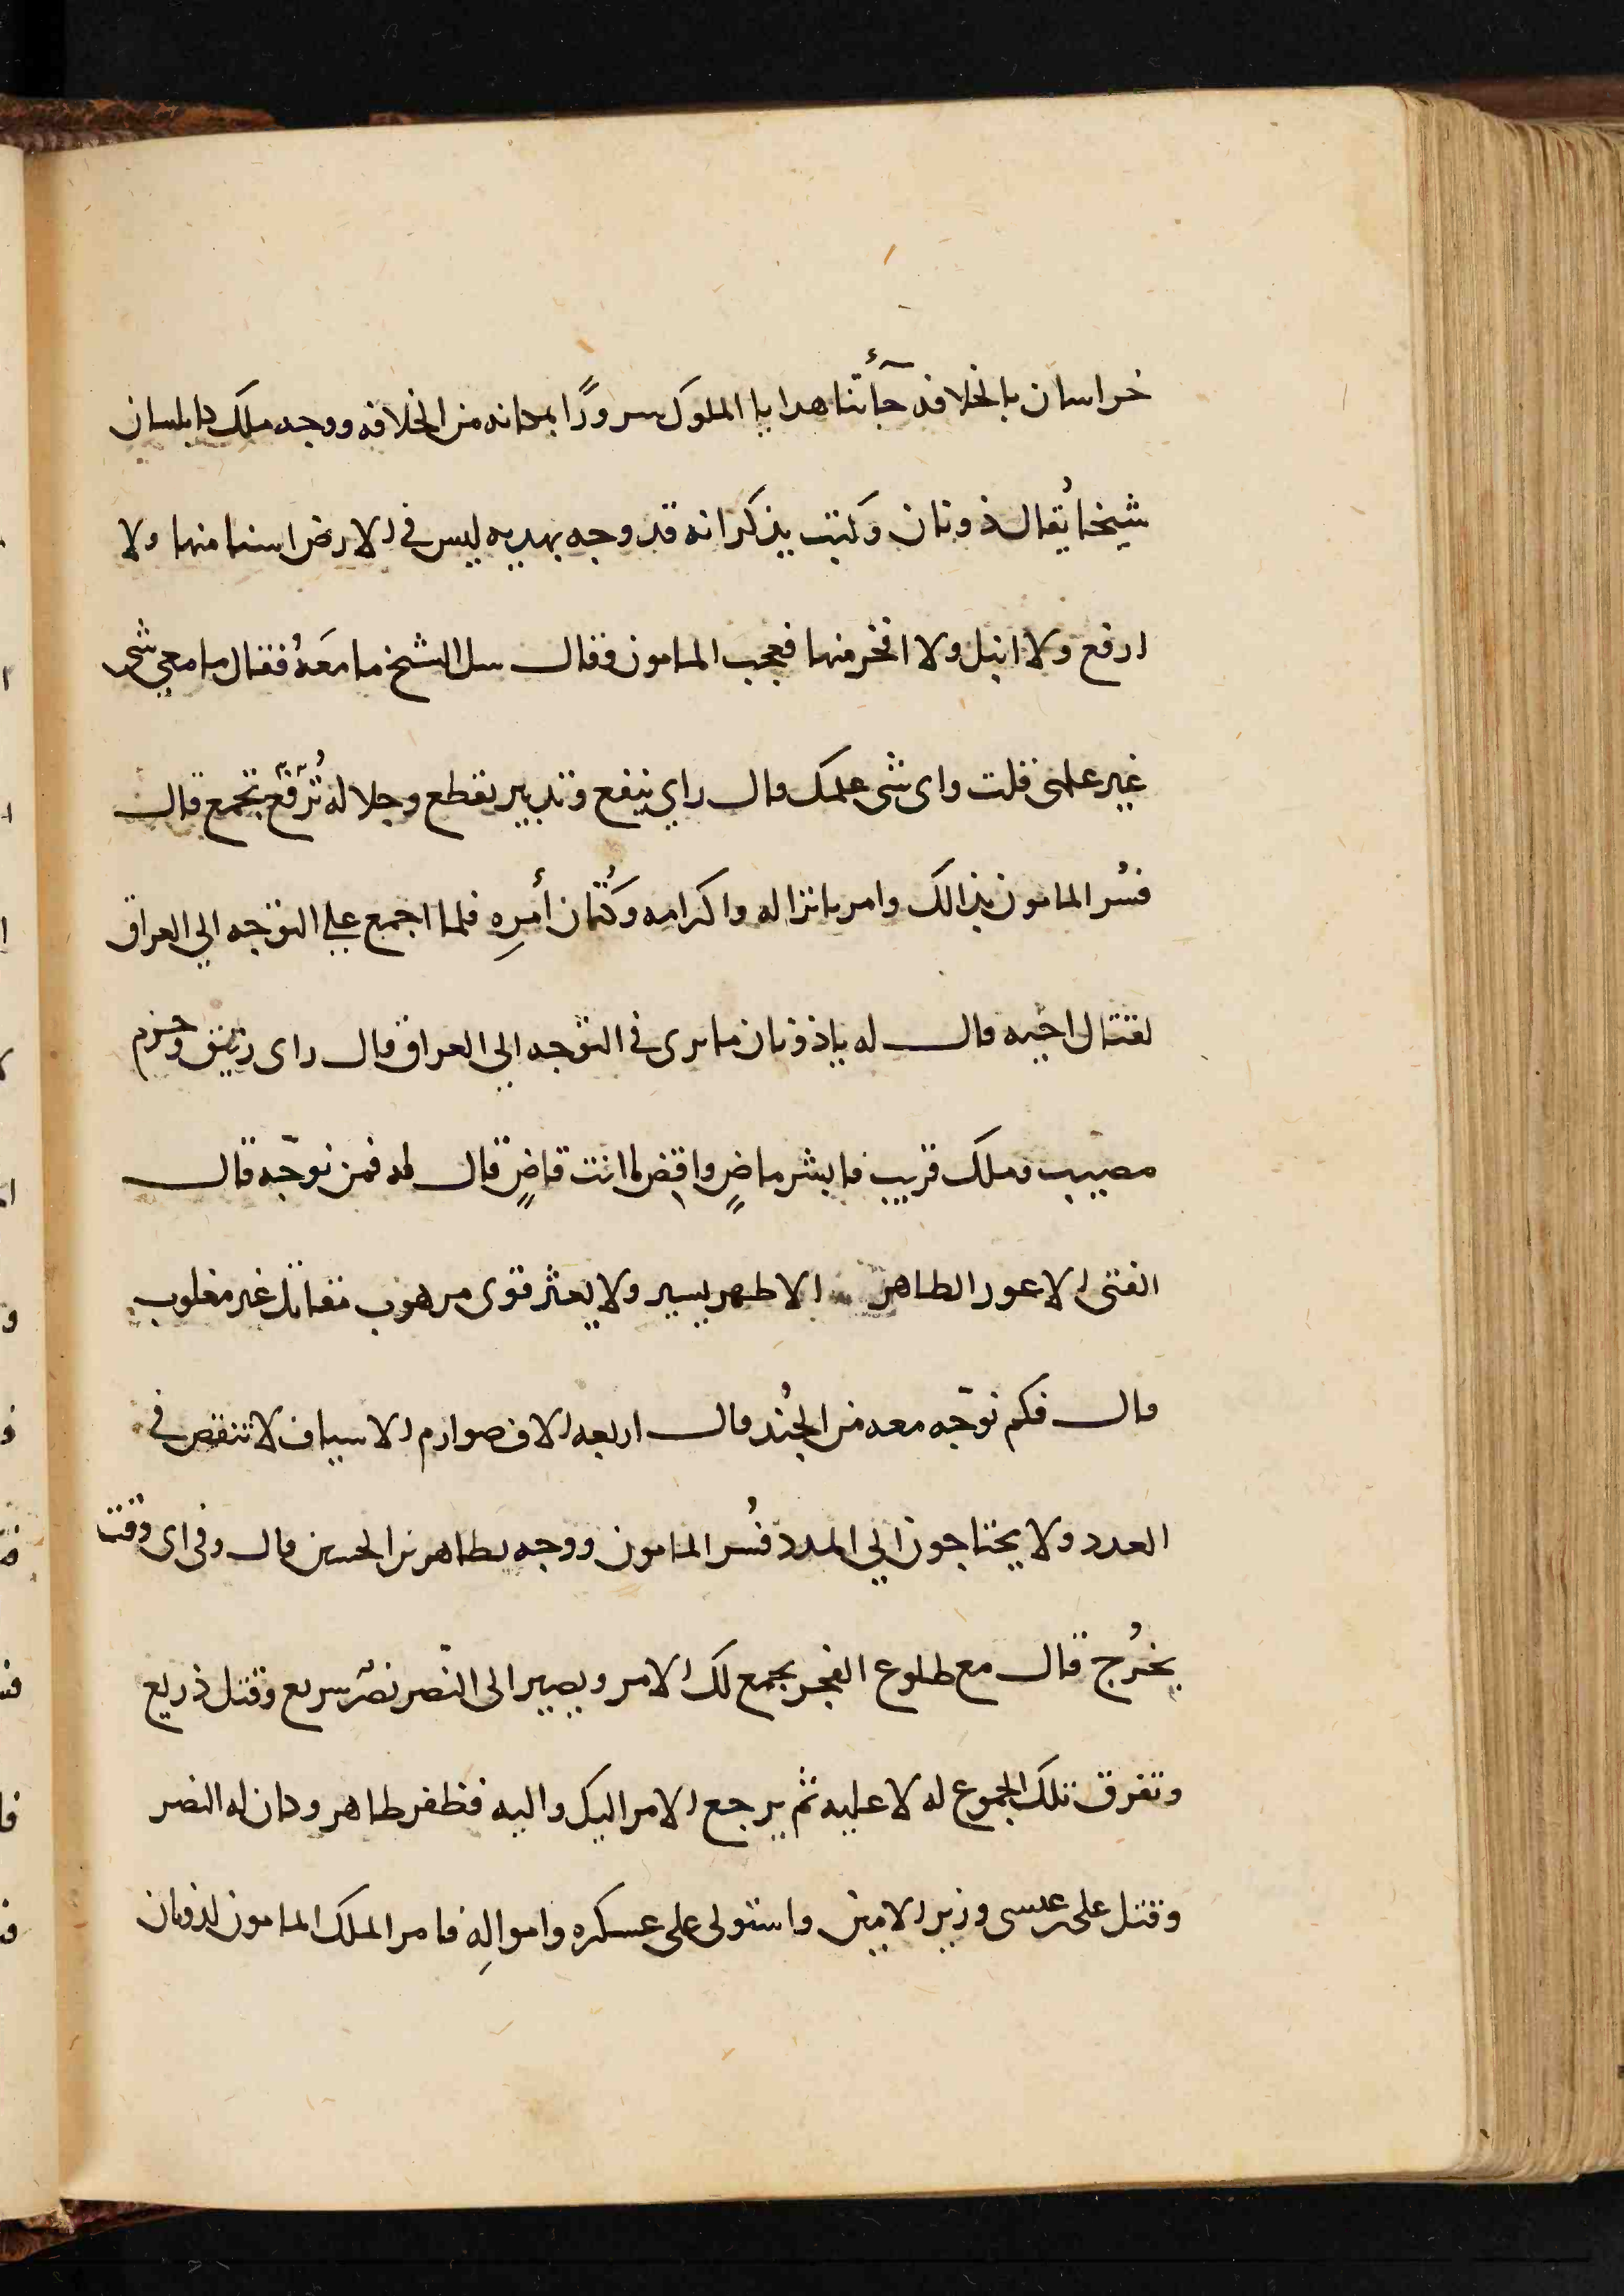 خراسان بالخلافه جآءتنا هدايا الملوك سرورًا بمكانه من الخلافه ووجه ملك كابلستان
شيخا يُقال ذوبان وكتب يذكر انه قد وجه بهديه ليس فى الارض اسنا منها ولا
ارفع ولا انبل ولا افخر منها فعجب المامون وقال سل الشيخ ما معَهُ فقال ما معي شى
غير علمى قلت واى شى علمك قال راي ينفع وتدبير يقطع وجلاله تُرَفّع تجمع قال
فسُر المامون بذالك وامر بانزاله واكرامه وكُتمان أمرِه فلما اجمع علي التوجه الي العراق
لقتال اخيه قال له ياذوبان ما ترى فى التوجه الي العراق قال راى وثيق وحزم
مصيب وملك قريب فابشر ماضٍ واقضِ ما انت قاضٍ قال له فمن نوجّه قال
الفتى الاعور الطاهر الاطهر يسير ولا يعثر قوى مرهوب مقاتل غير مغلوب
قال فكم نوجّه معه من الجُند قال اربعه الاف صوارم الاسياف لا تنقص فى
العدد ولا يحتاجون الي المدد فسُر المامون ووجه بطاهر بن الحسين قال وفى اى وقت
يخرُج قال مع طلوع الفجر يجمع لك الامر ويصير الى النّصر نصر سريع وقتل ذريع
وتفرق تلك الجموع له لا عليه ثم يرجع الامر اليك واليه فظفر طاهر وكان له النصر
وقتل على بن عيسى وزير الامين واستولى على عسكره وامواله فامر الملك المامون لذوبان